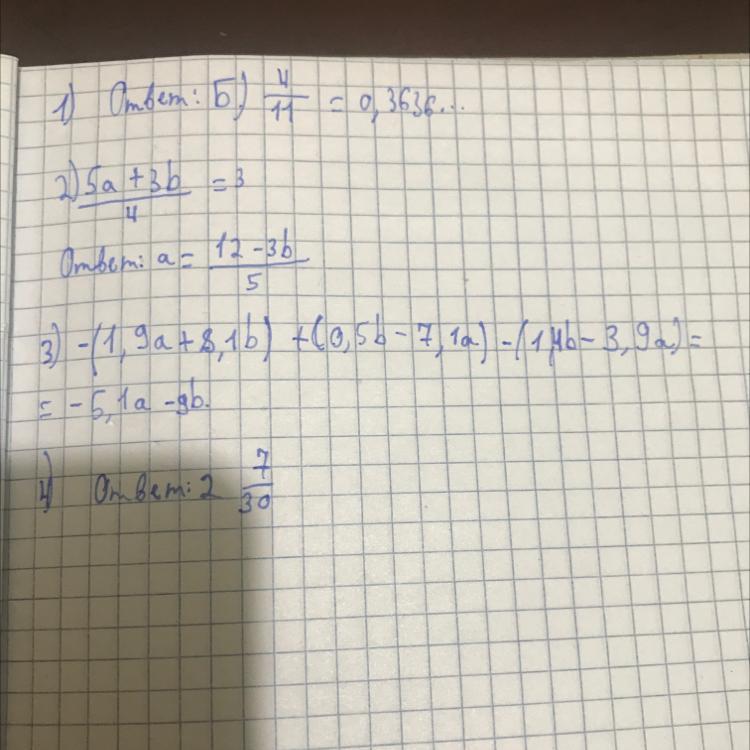 1) Ответ: Б) 4/11 = 0,3636...
2) 5a + 3b / 4 = 3
Ответ: a = 12 - 3b / 5
3) -(1,9a + 8,1b) + (0,5b - 7,1a) - (1,4b - 3,9a) =
= -5,1a - 9b.
4) Ответ: 2 7/30